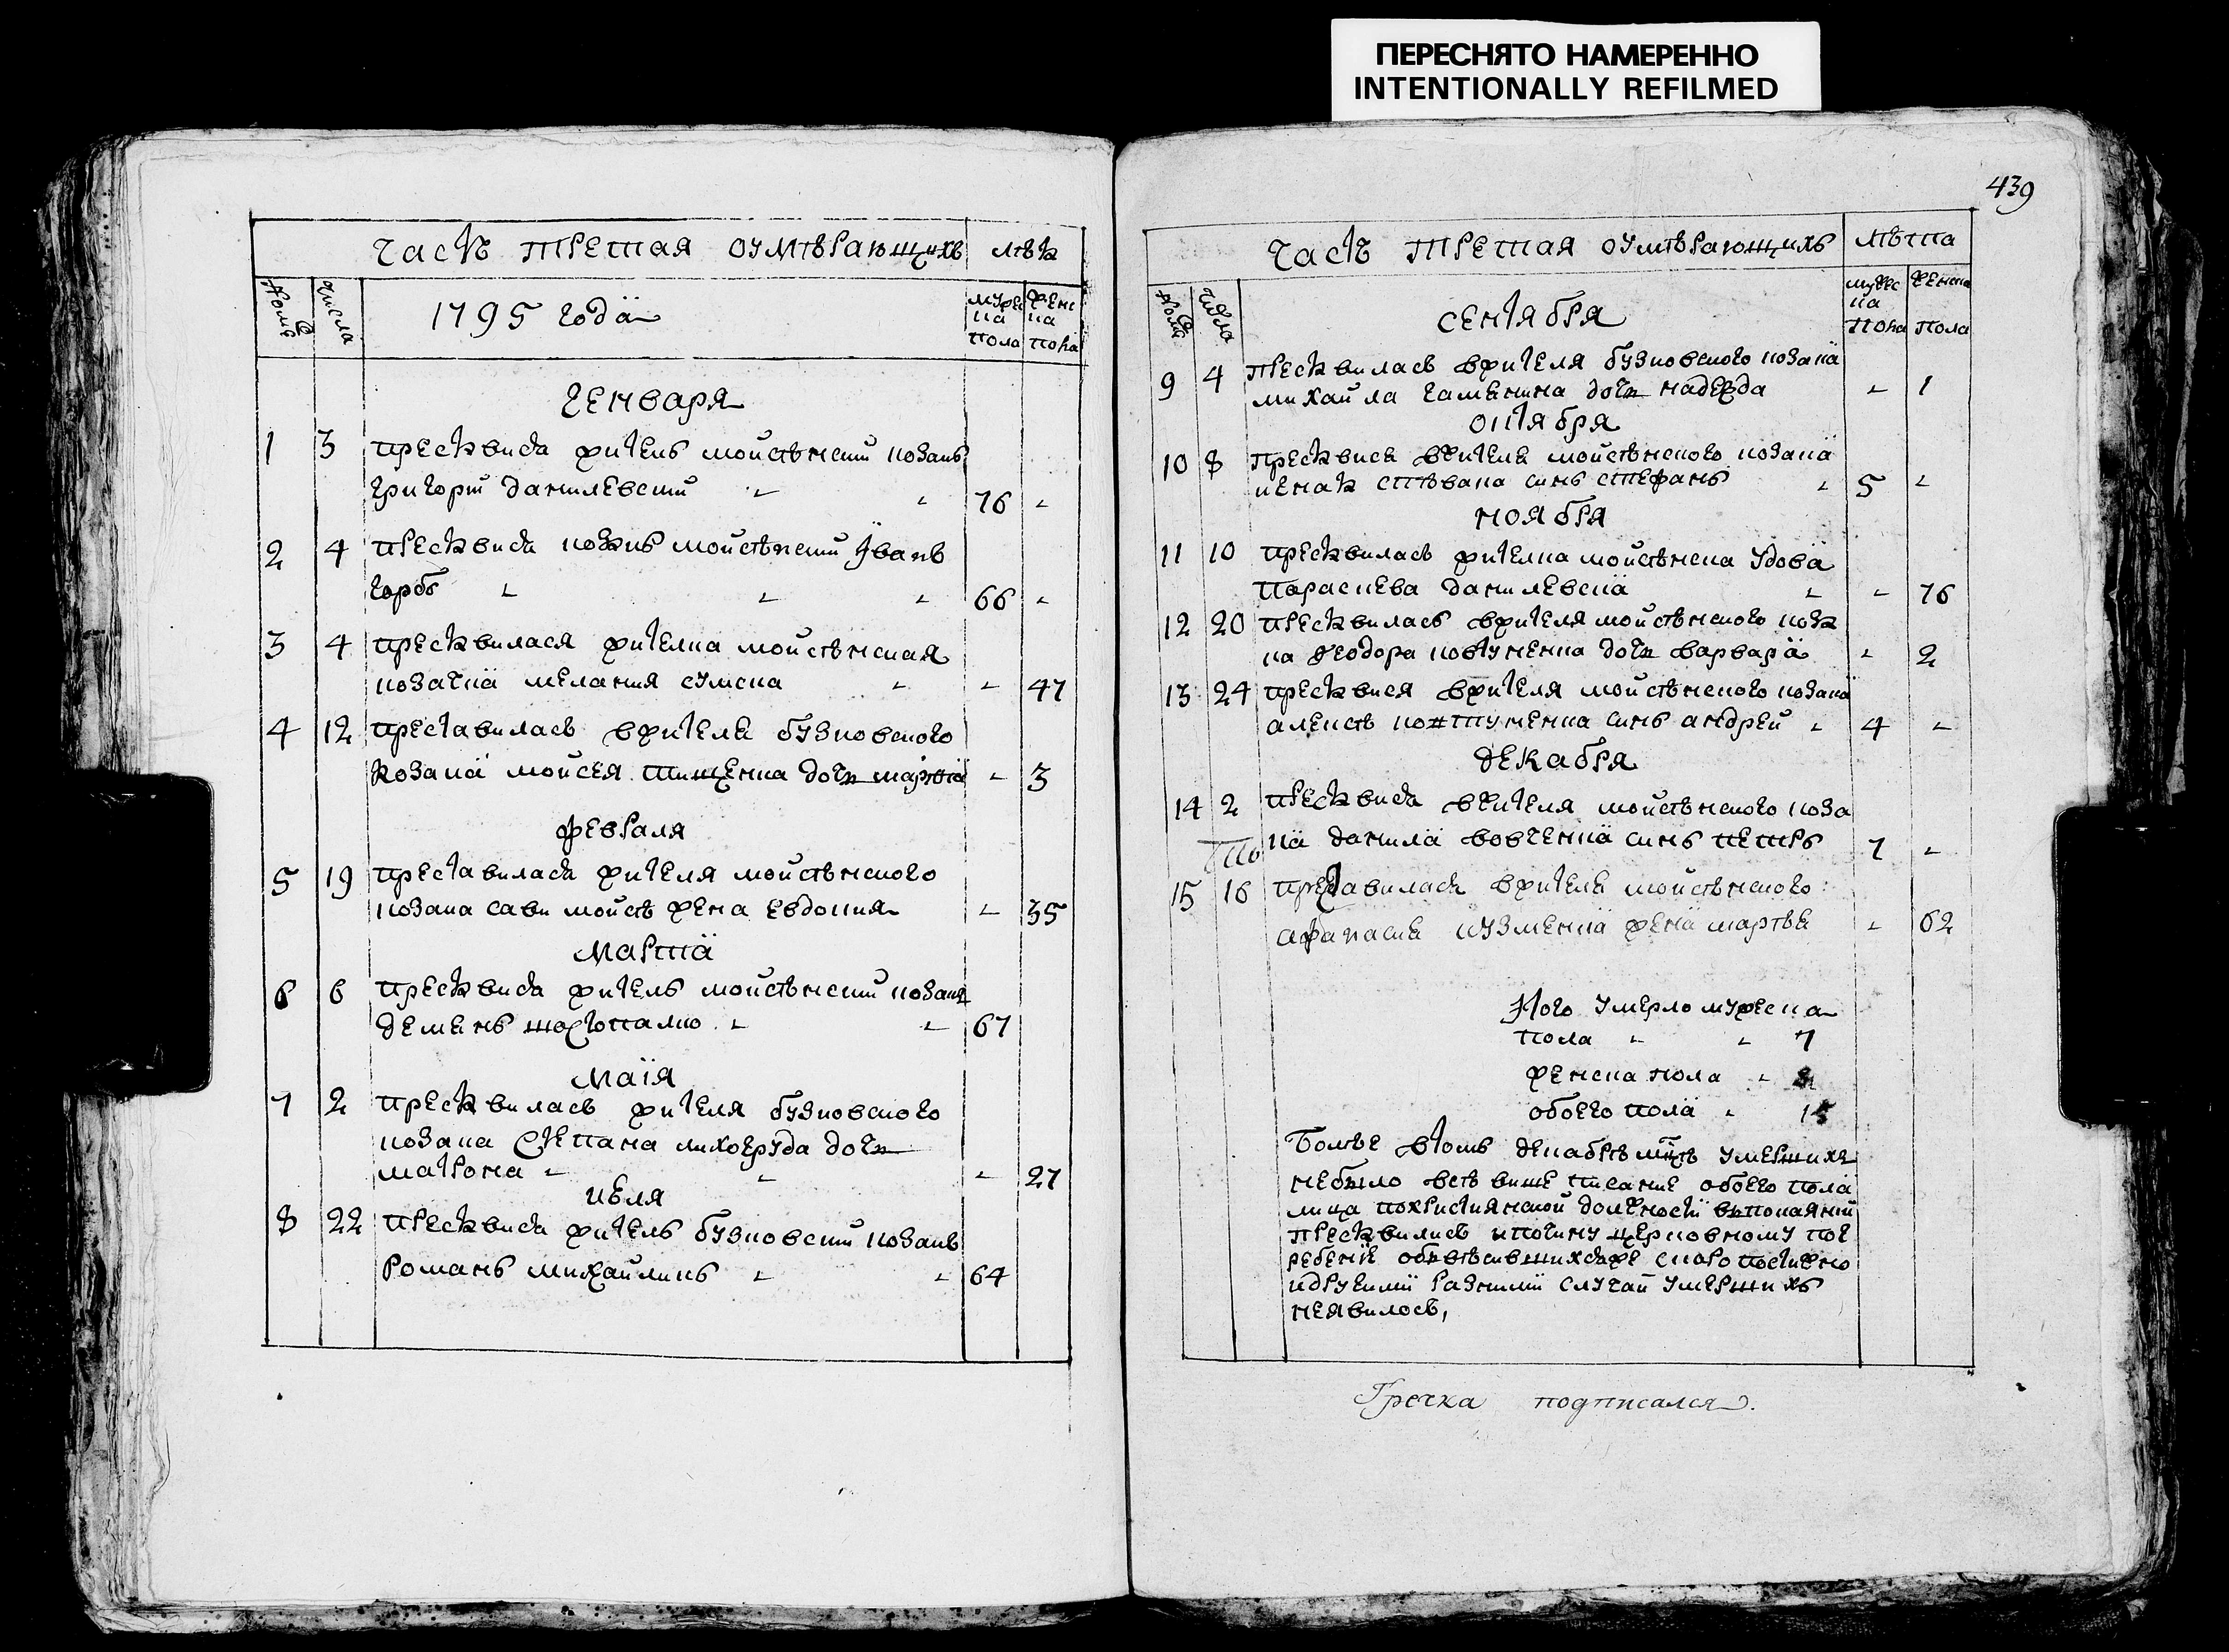 ПЕРЕСНЯТО НАМЕРЕННО
INTENTIONALLY REFILMED
439
Часть третая оумѣрающихъ лѣтъ
Номѣръ
числа
1795 года
мужеска пола
женска пола
Генваря
1 3 преставися жителъ мойсѣнский козакъ
григорий данилевский 76 -
2 4 преставися козакъ мойсѣнский Іванъ
горбъ 66 -
3 4 преставилася жителка мойсѣнская
козачка мелания сумска - 47
4 12 преставилась в жителя бузковского
козака мойсея тищенка дочъ марфа - 3
февраля
5 19 преставилась жителя мойсѣнского
козака сави мойсѣ жена евдокия - 35
марта
6 6 преставися жителъ мойсѣнский козакъ
деменъ 67
маія
7 2 преставилась жителя бузковского
козака степана лихоеруда дочъ
матрона - 27
июля
8 22 преставися жителъ бузковский козакъ
романъ михайликъ 64
Часть третая оумѣрающихъ лѣта
Номѣръ
числа
мужеска пола
женска пола
сентября
9 4 преставилась в жителя бузковского козака
михайла дочъ надежда - 1
октября
10 8 преставися в жителя мойсѣнского козака
стѣвака синъ стефанъ 5 -
ноября
11 10 преставилась жителка мойсѣнска удова
параскева данилевска - 76
12 20 преставилась в жителя мойсѣнского коза
ка феодора ковтуненка дочъ варвара - 2
13 24 преставися в жителя мойсѣнского козака
алексѣ ковтуненка синъ андрей 4 -
декабря
14 2 преставися в жителя мойсѣнского коза
ка данила вовченка синъ петръ 7 -
15 16 преставилася в жителя мойсѣнского
афанасие кузменка жена марфа - 62
Итого умерло мужеска
пола 7
женска пола 8
обоего пола 15
Болѣе в томъ декабрѣ мцѣ умершихъ
небыло всѣ више писание обоего пола
лица похристиянской должности
преставились и по чину церковному погребение
скоропостижно
и другими разними случаи умершихъ
неявилось,
Гречка подписался.